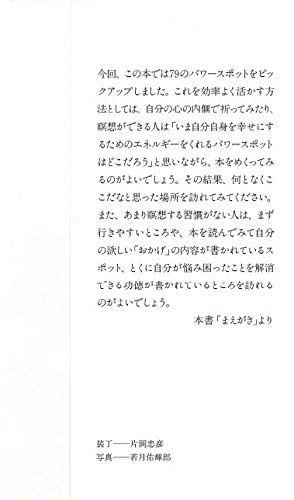 今回、この本では79のパワースポットをピッ
クアップしました。これを効率よく活かす方
法としては、自分の心の内側で祈ってみたり、
瞑想ができる人は「いま自分自身を幸せにす
るためのエネルギーをくれるパワースポット
はどこだろう」と思いながら、本をめくってみ
るのがよいでしょう。その結果、何となくこ
こだなと思った場所を訪れてみてください。
また、あまり瞑想する習慣がない人は、まず
行きやすいところや、本を読んでみて自分
の欲しい「おかげ」の内容が書かれているス
ポット、とくに自分が悩み困ったことを解消
できる功徳が書かれているところを訪れる
のがよいでしょう。
本書「まえがき」より
装丁――片岡忠彦
写真――若月佑輝郎